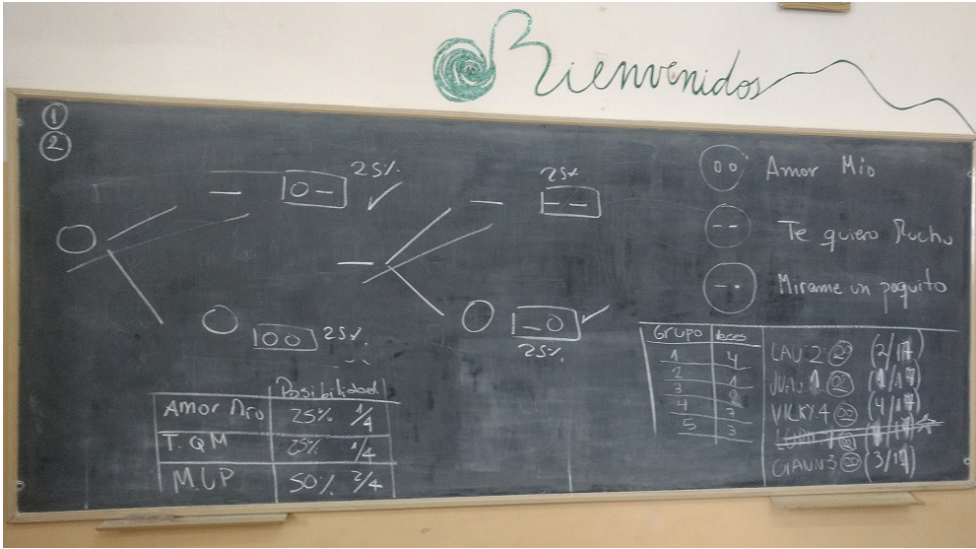 Bienvenidos
1
2
25%
25%
25%
25%
Amor Mio
Te quiero Mucho
Mirame un poquito
Posibilidad
Amor 25% 1/4
T.QM 25% 1/4
M.U.P 50% 2/4
Grupo veces
1 4
2 1
3 2
4
5 3
LAU 2 (2/17)
JUAN 1 (1/17)
VICKY 4 (4/17)
3 (3/17)